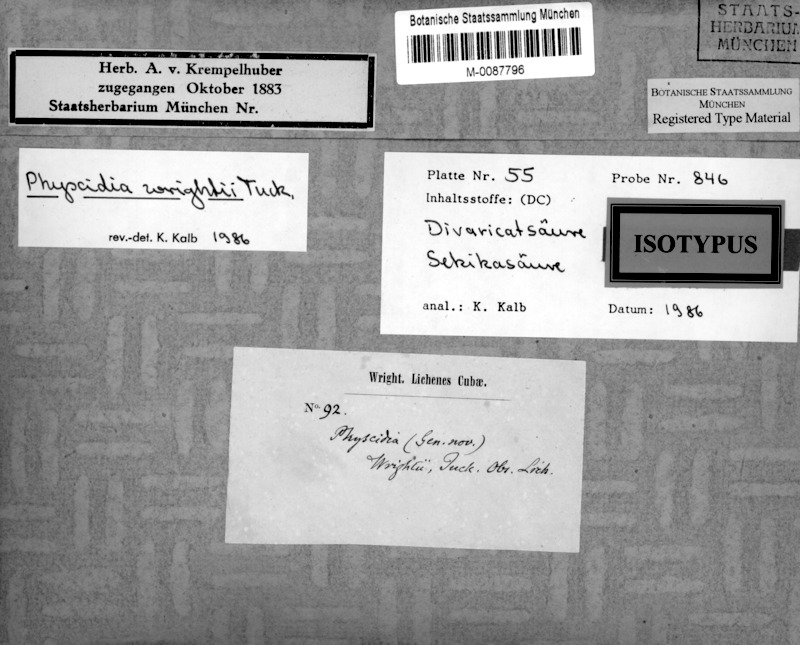 Botanische Staatssammlung München
M-0087796
STAATS-
HERBARIUM
MÜNCHEN
Herb. A. v. Krempelhuber
zugegangen Oktober 1883
Staatsherbarium München Nr.
BOTANISCHE STAATSSAMMLUNG
MÜNCHEN
Registered Type Material
Physcidia wrightii Tuck.
rev.-det. K. Kalb 1986
Platte Nr. 55 Probe Nr. 846
Inhaltsstoffe: (DC)
Divaricatsäure
Sekikasäure
ISOTYPUS
anal.: K. Kalb Datum: 1986
Wright. Lichenes Cubæ.
No. 92.
Physcidia (Gen. nov.)
Wrightii, Tuck. Obs. Lich.